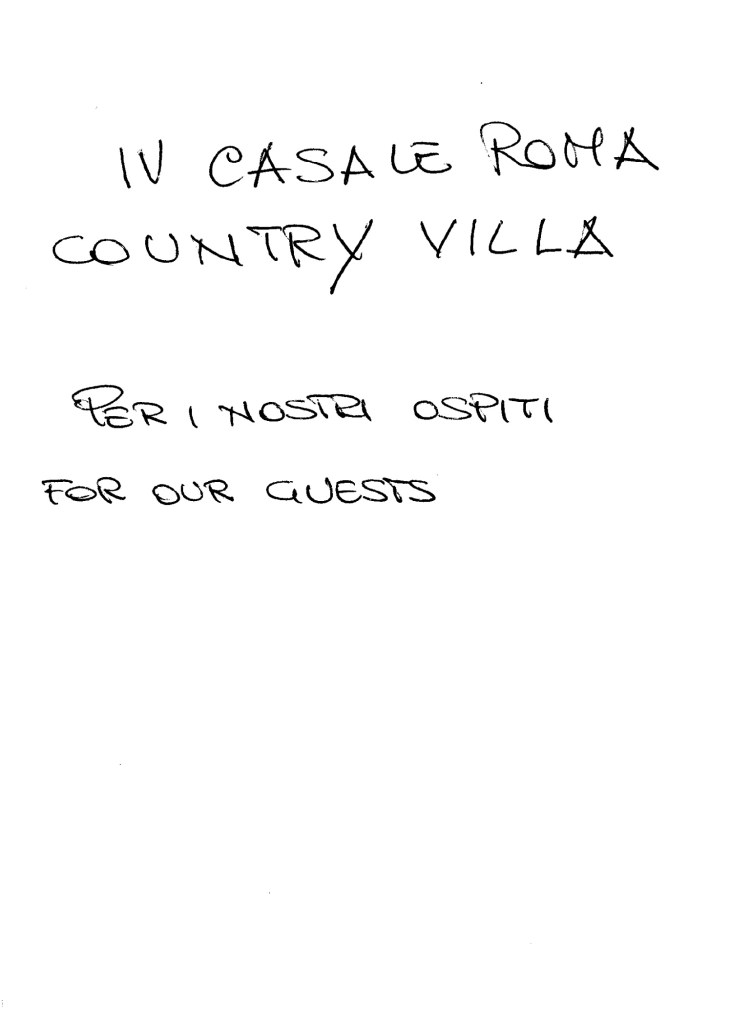 IV CASALE ROMA
COUNTRY VILLA
PER I NOSTRI OSPITI
FOR OUR GUESTS